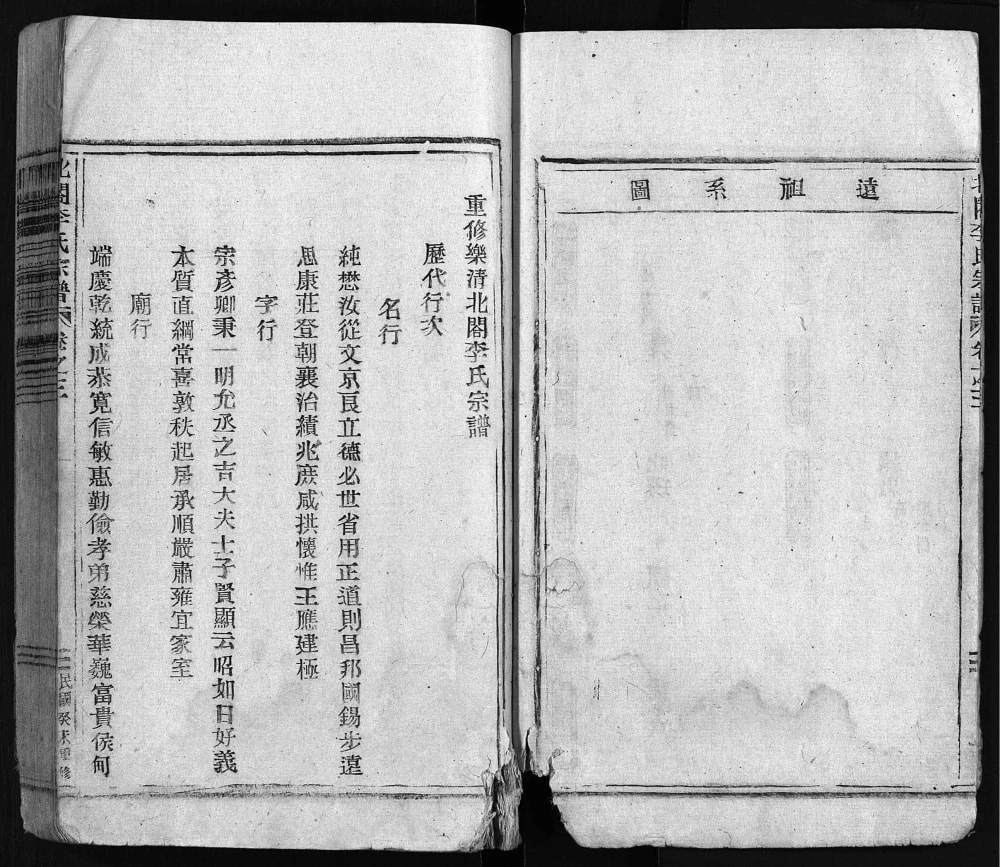 遠祖系圖
重修樂清北閣李氏宗譜
歷代行次
名行
純懋汝從文京良立德必世省用正道則昌邦國錫步遠
思康莊登朝襄治績兆庶咸拱懷惟王應建極
字行
宗彥卿秉一明允丞之吉大夫士子賢顯云昭如日好義
本質直綱常喜敦秩起居承順嚴肅雍宜家室
廟行
端慶乾統成恭寬信敏惠勤儉孝弟慈榮華巍富貴侯何
北閣李氏宗譜
卷之三
民國癸未重修